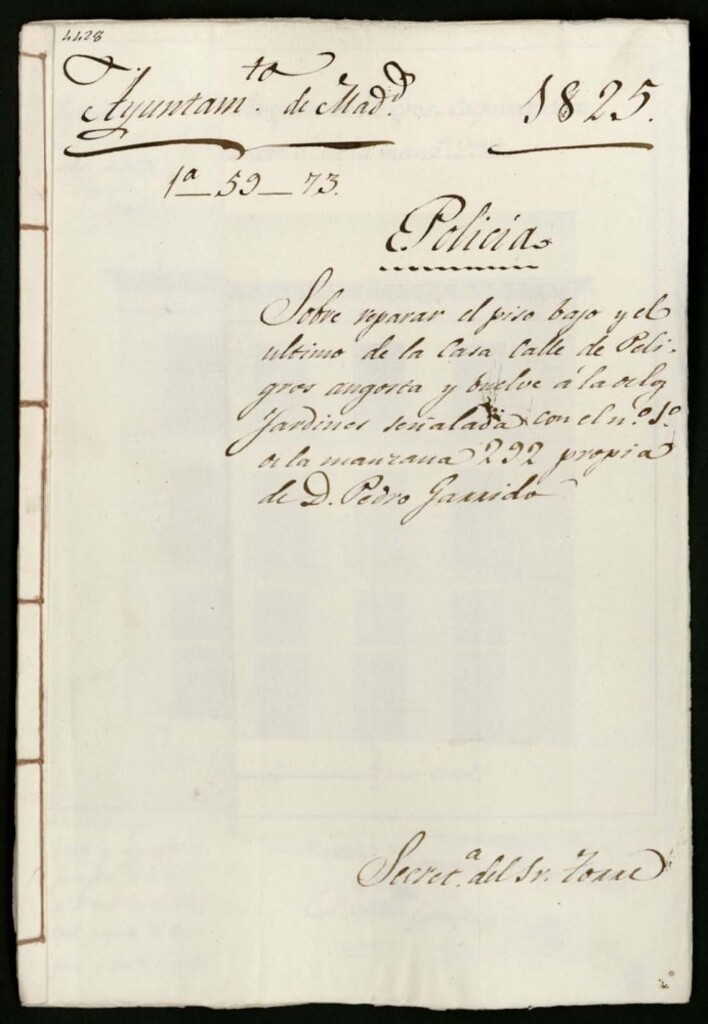 4428
Ayuntam.to de Mad.d 1825.
1ª_59_73.
Policía
Sobre reparar el piso bajo y el
ultimo de la Casa Calle de Peli-
gros angosta y buelve á la de los
Jardines señalada con el n.º 1.º
de la manzana 292 propia
de D. Pedro Garrido
Secret.ª del Sr. Torre